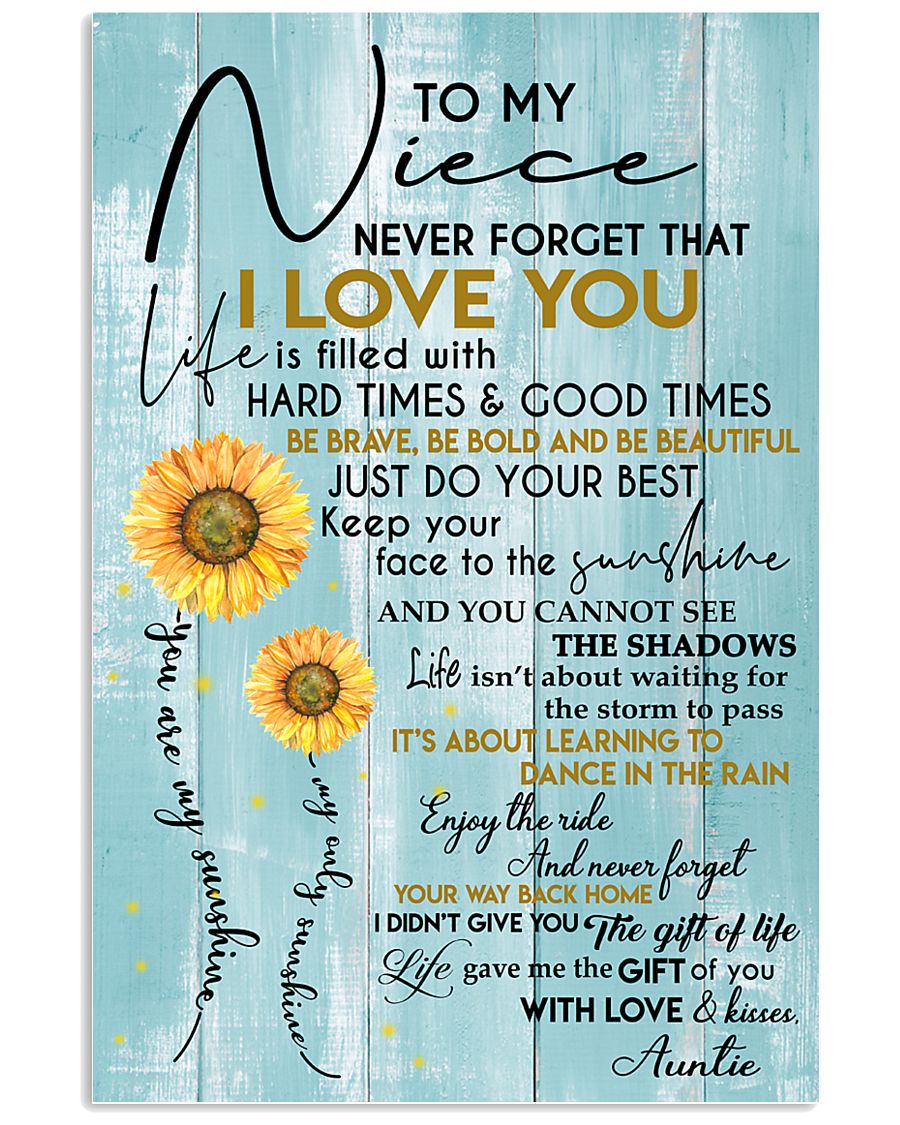 TO MY
Niece
NEVER FORGET THAT
I LOVE YOU
Life is filled with
HARD TIMES & GOOD TIMES
BE BRAVE, BE BOLD AND BE BEAUTIFUL
JUST DO YOUR BEST
Keep your
face to the sunshine
AND YOU CANNOT SEE
THE SHADOWS
Life isn't about waiting for
the storm to pass
IT'S ABOUT LEARNING TO
DANCE IN THE RAIN
Enjoy the ride
And never forget
YOUR WAY BACK HOME
I DIDN'T GIVE YOU The gift of life
Life gave me the GIFT of you
WITH LOVE & kisses,
Auntie
you are my sunshine
my only sunshine